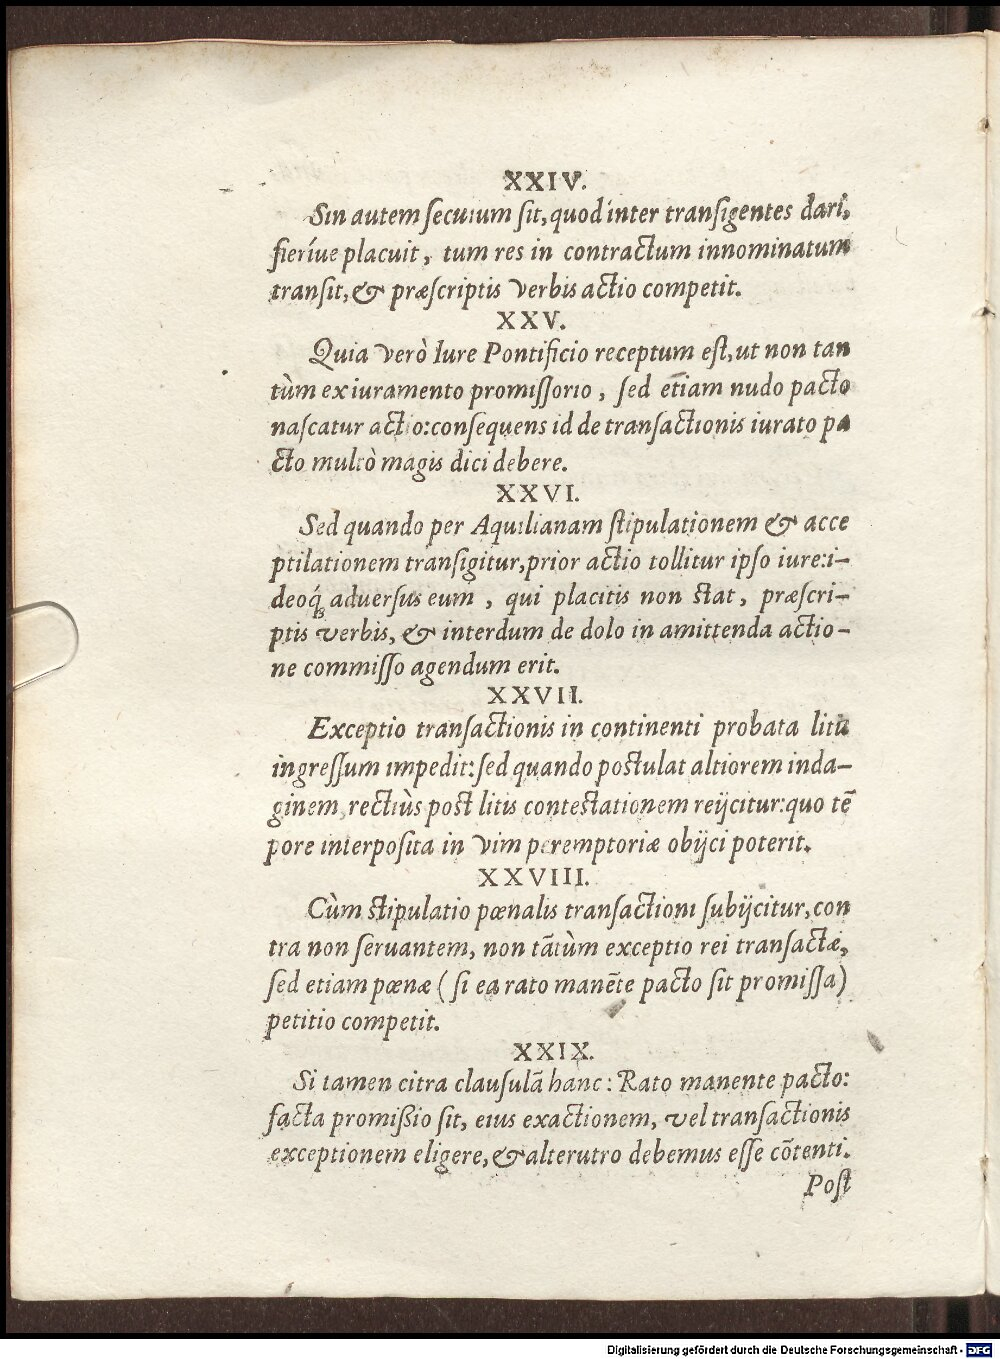 XXIV.
Sin autem secutum sit, quod inter transigentes dari,
fieríue placuit, tum res in contractum innominatum
transit, & præscriptis verbis actio competit.
XXV.
Quia verò Iure Pontificio receptum est, ut non tan
tùm ex iuramento promissorio, sed etiam nudo pacto
nascatur actio: consequens id de transactionis iurato pa
cto multò magis dici debere.
XXVI.
Sed quando per Aquilianam stipulationem & acce
ptilationem transigitur, prior actio tollitur ipso iure: i-
deoq́; aduersus eum, qui placitis non stat, præscri-
ptis verbis, & interdum de dolo in amittenda actio-
ne commisso agendum erit.
XXVII.
Exceptio transactionis in continenti probata litis
ingressum impedit: sed quando postulat altiorem inda-
ginem, rectiùs post litis contestationem reijcitur: quo tẽ
pore interposita in vim peremptoriæ obijci poterit.
XXVIII.
Cùm stipulatio pœnalis transactioni subijcitur, con
tra non seruantem, non tãtùm exceptio rei transactæ,
sed etiam pœnæ (si ea rato manẽte pacto sit promissa)
petitio competit.
XXIX.
Si tamen citra clausulã hanc: Rato manente pacto:
facta promißio sit, eius exactionem, vel transactionis
exceptionem eligere, & alterutro debemus esse cõtenti.
Post
Digitalisierung gefördert durch die Deutsche Forschungsgemeinschaft - DFG